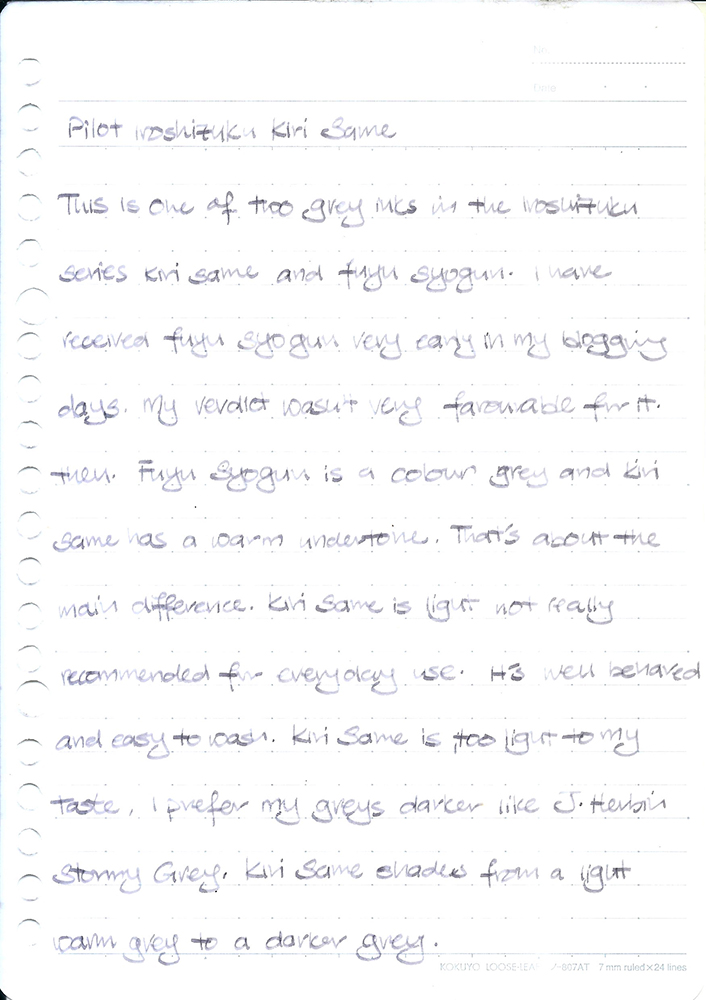 No.
Date
Pilot iroshizuku Kiri Same
This is one of two grey inks in the iroshizuku
series kiri same and fuyu syogun. I have
received fuyu syogun very early in my blogging
days. My verdict wasn't very favourable for it.
then. Fuyu Syogun is a colour grey and Kiri
Same has a warm undertone. That's about the
main difference. Kiri Same is light not really
recommended for everyday use. It's well behaved
and easy to wash. Kiri Same is too light to my
taste, I prefer my greys darker like J. Herbin
Stormy Grey. Kiri Same shades from a light
warm grey to a darker grey.
KOKUYO LOOSE-LEAF -807AT 7 mm ruled×24 lines